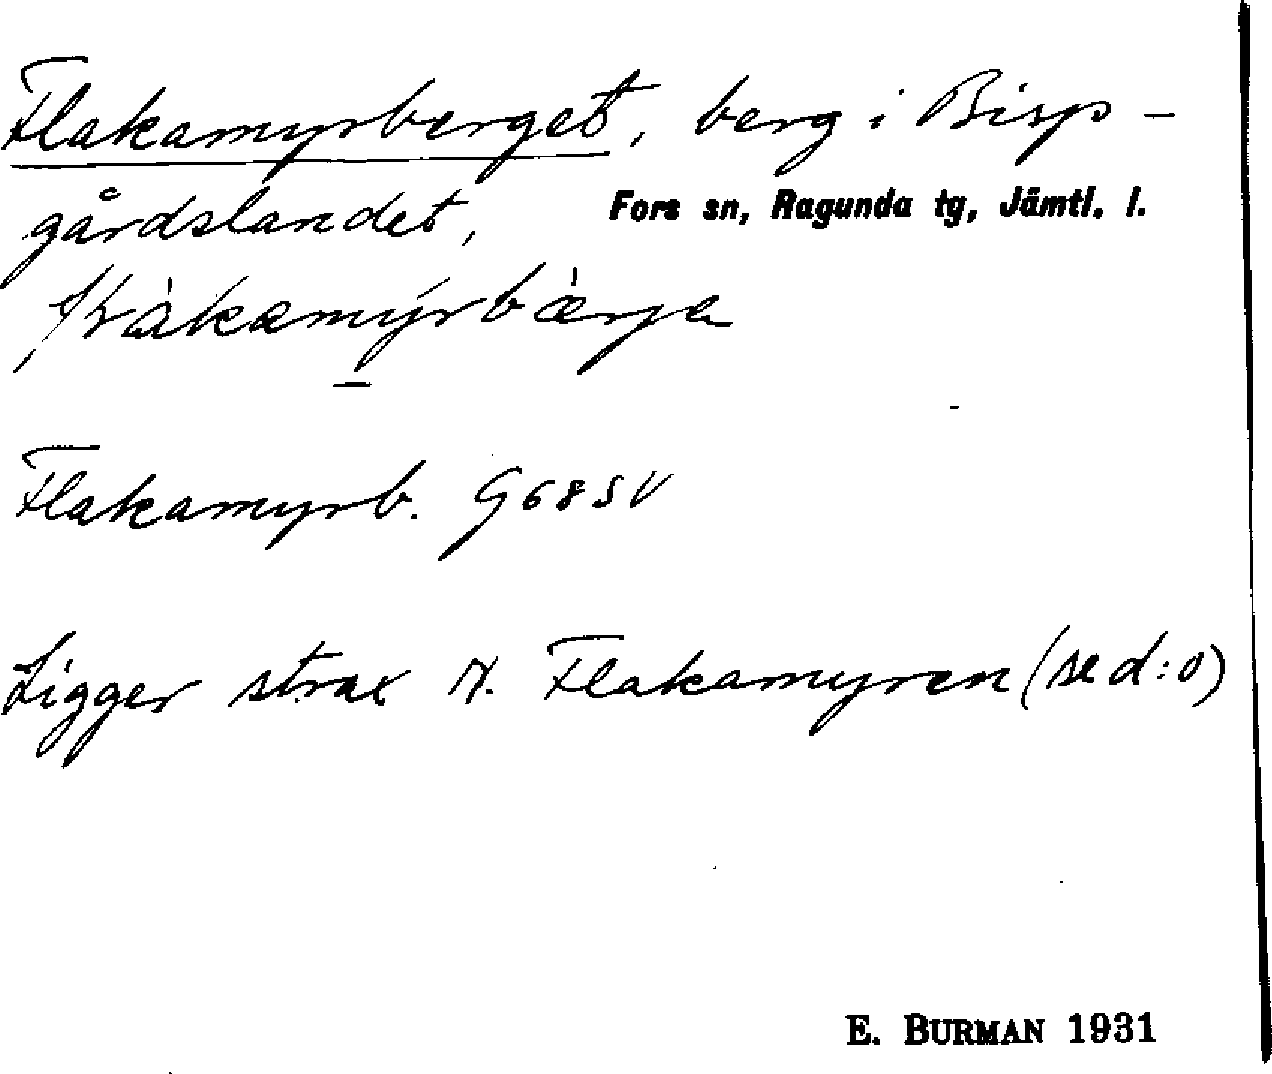 Flakamyrberget, berg i Bisp-
gårdslandet, Fors sn, Ragunda tg, Jämtl. l.
Flakamyrb. G68SV
Ligger strax N. Flakamyren (se d:o)
E. BURMAN 1931